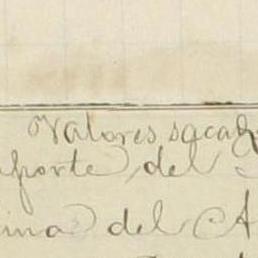 Valores saca
porte del
ina del A